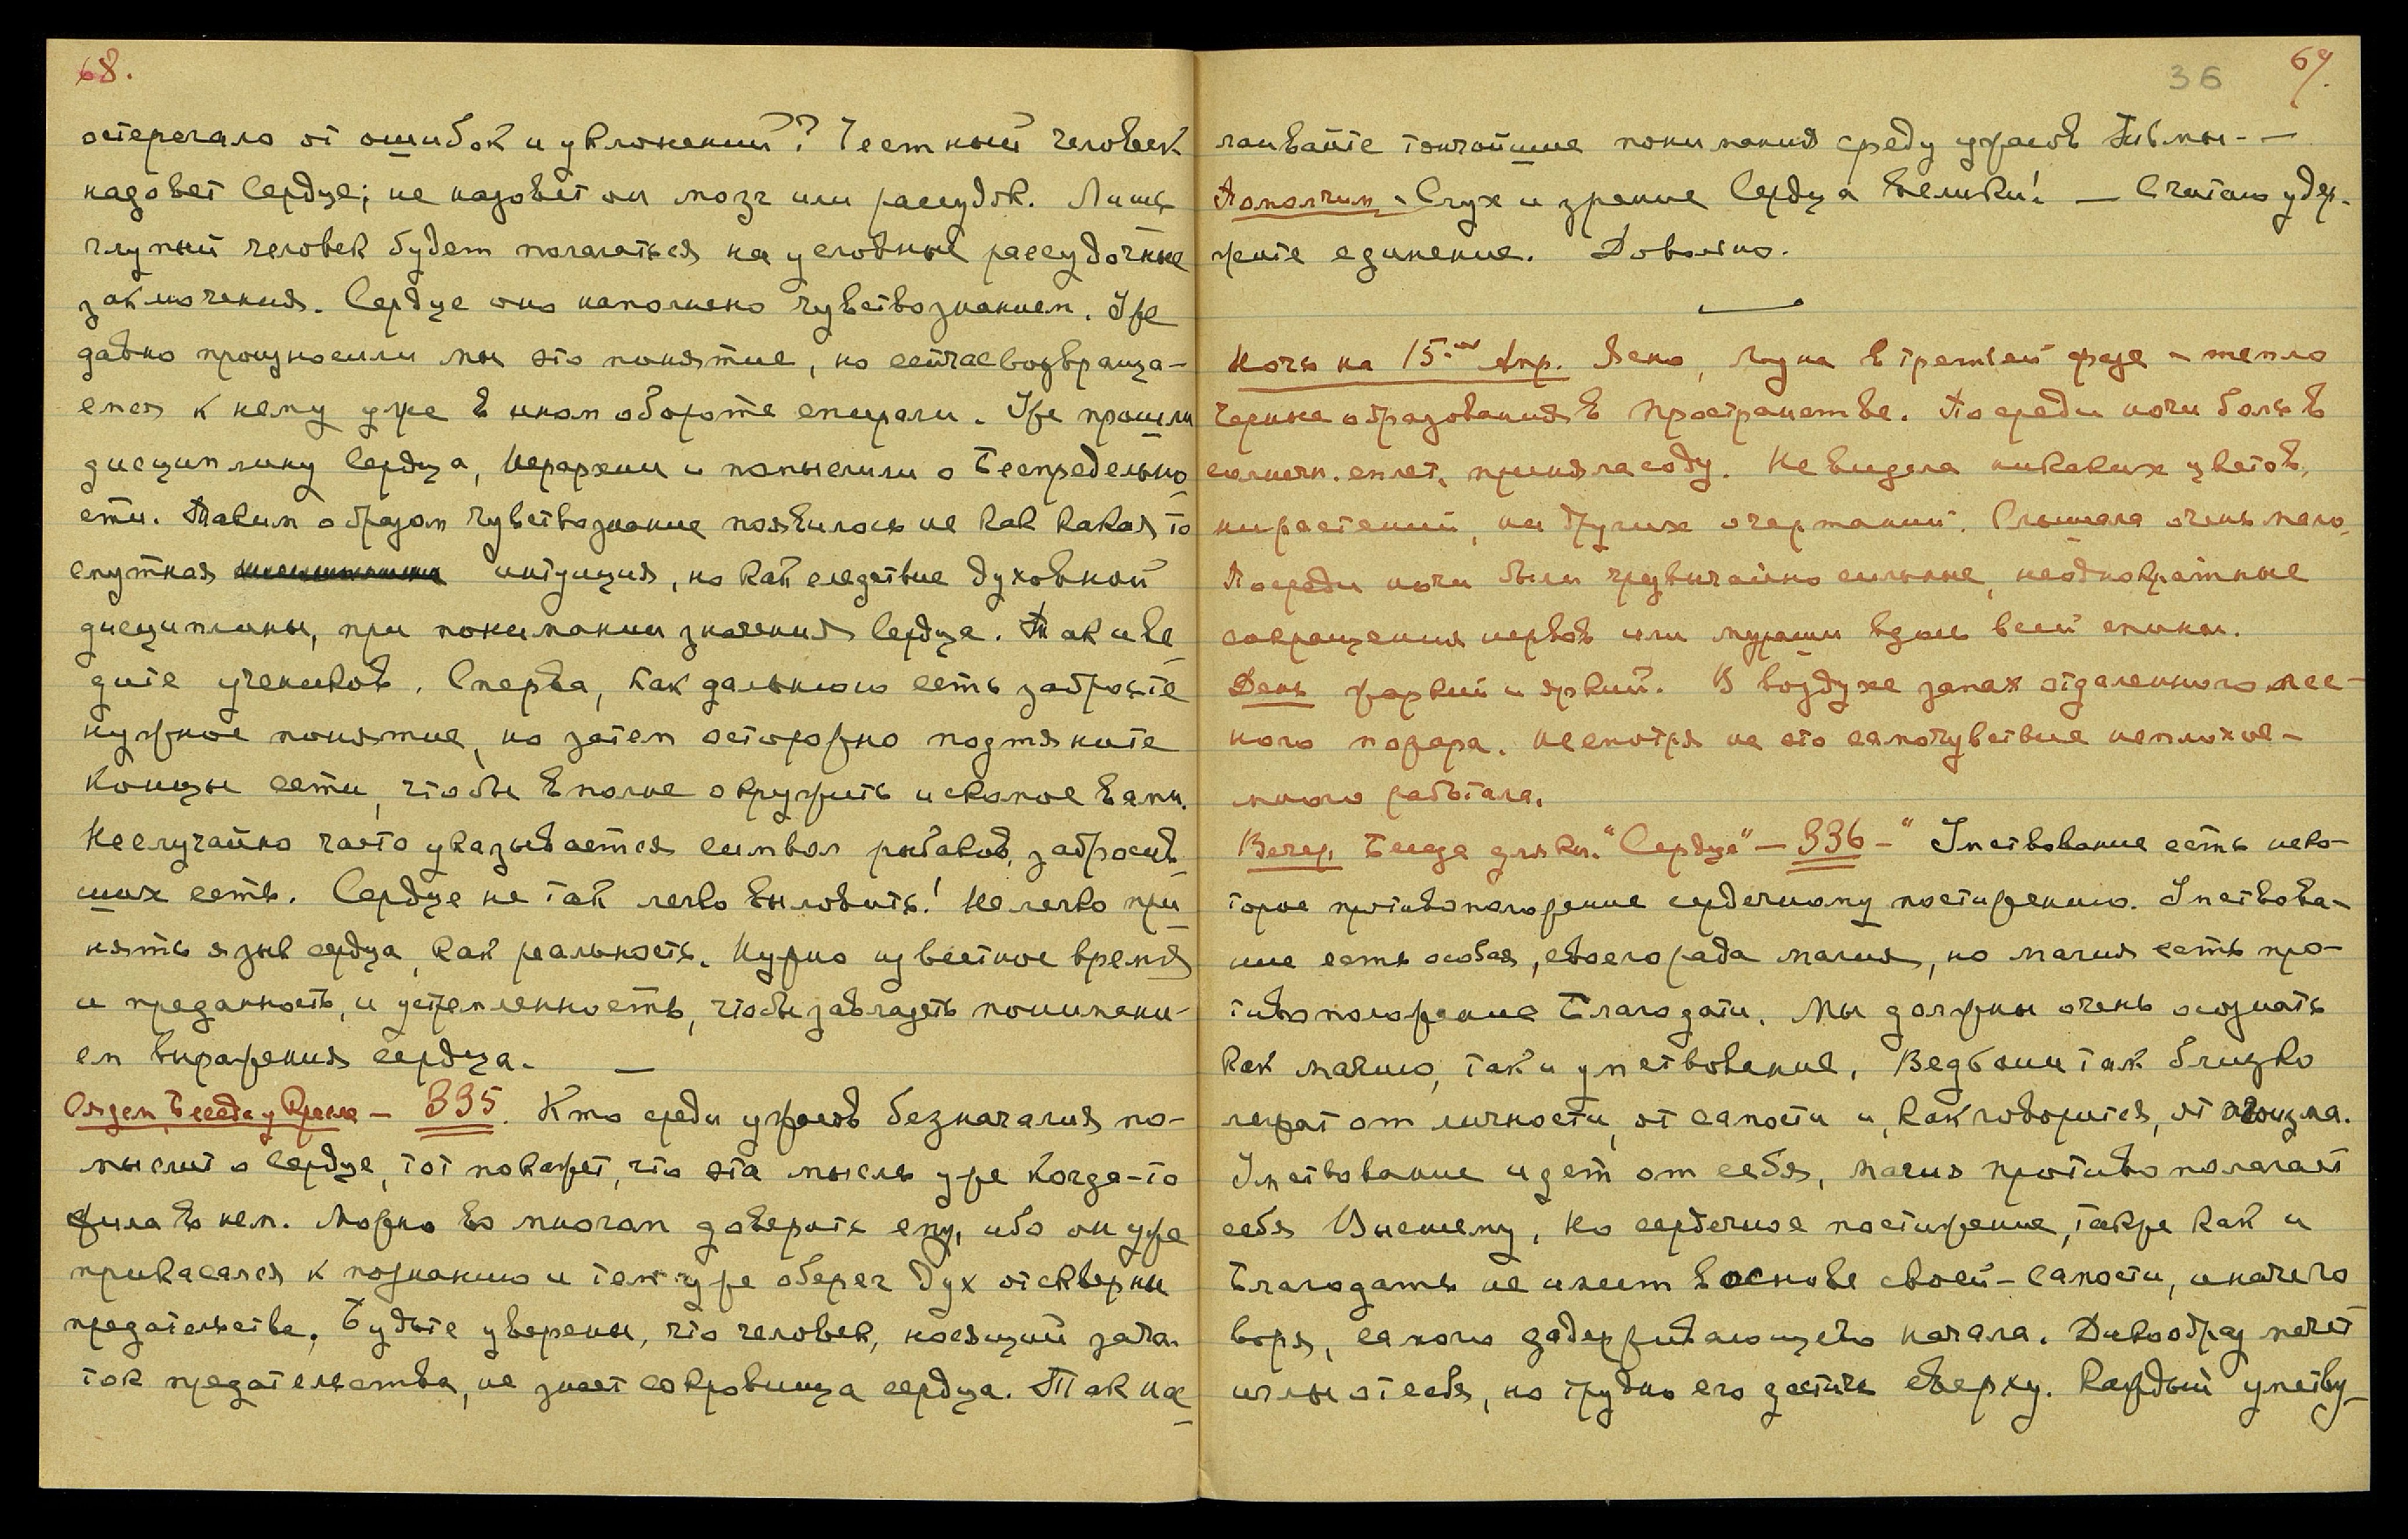 68.
остерегало от ошибок и уклонений? Честный человек
назовет Сердце; не назовет он мозг или рассудок. Лишь
глупый человек будет полагаться на условные рассудочные
заключения. Сердце оно наполнено чувствознанием. Уже
давно произносили мы это понятие, но сейчас возвраща-
емся к нему уже в ином обороте спирали. Уже прошли
дисциплину Сердца, Иерархии и помыслили о Беспредельно-
сти. Таким образом чувствознание появилось не как какая то
смутная интуиция, но как следствие духовной
дисциплины, при понимании значения Сердца. Так и ве-
дите учеников. Сперва, как дальнюю сеть забросьте
нужное понятие, но затем осторожно подтяните
концы сети, чтобы вполне окружить искомое вами.
Неслучайно часто указывается символ рыбаков, забросив-
ших сеть. Сердце не так легко выловить! Нелегко при-
нять язык сердца, как реальность. Нужно известное время
и преданность, и устремленность, чтобы завладеть понимани-
ем выражения сердца. —
Беседа у Кресла — 335. Кто среди ужасов безначалия по-
мыслит о Сердце, тот покажет, что эта мысль уже когда-то
жила в нем. Можно во многом доверить ему, ибо он уже
прикасался к познанию и тем уже оберег дух от скверны
предательства. Будьте уверены, что человек, носящий зача-
ток предательства, не знает сокровища сердца. Так на-
36 69.
пливайте тончайшие понимания среди ужасов тьмы. —
Помолчим. — Слух и зрение Сердца велики! — Считаю удер-
жите единение. Довольно.
Ночь на 15-ое Апр. Ясно, луна в третьей фазе — тепло
черные образования в пространстве. Посреди ночи боль в
солнечн. сплет., приняла соду. Не видела никаких цветов,
ни растений, ни других очертаний. Слышала очень мало.
Посреди ночи были чрезвычайно сильные, неоднократные
сокращения нервов или мураши вдоль всей спины.
День жаркий и яркий. В воздухе запах отдаленного лес-
ного пожара. Несмотря на это самочувствие неплохое —
много работала.
Вечер, Беседа для кн. "Сердце" — 336 — "Умствование есть неко-
торое противоположение сердечному постижению. Умствова-
ние есть особая, своего рода магия, но магия есть про-
тивоположение Благодати. Мы должны очень осознать
как магию, так и умствование. Ведь они так близко
лежат от личности, от самости и, как говорится, от эгоизма.
Умствование идет от себя, магия противополагает
себя Высшему, но сердечное постижение, также как и
Благодать не имеет в основе своей — самости, иначе го-
воря, самого задерживающего начала. Дикообраз мечет
иглы от себя, но трудно его достичь сверху. Каждый умству-